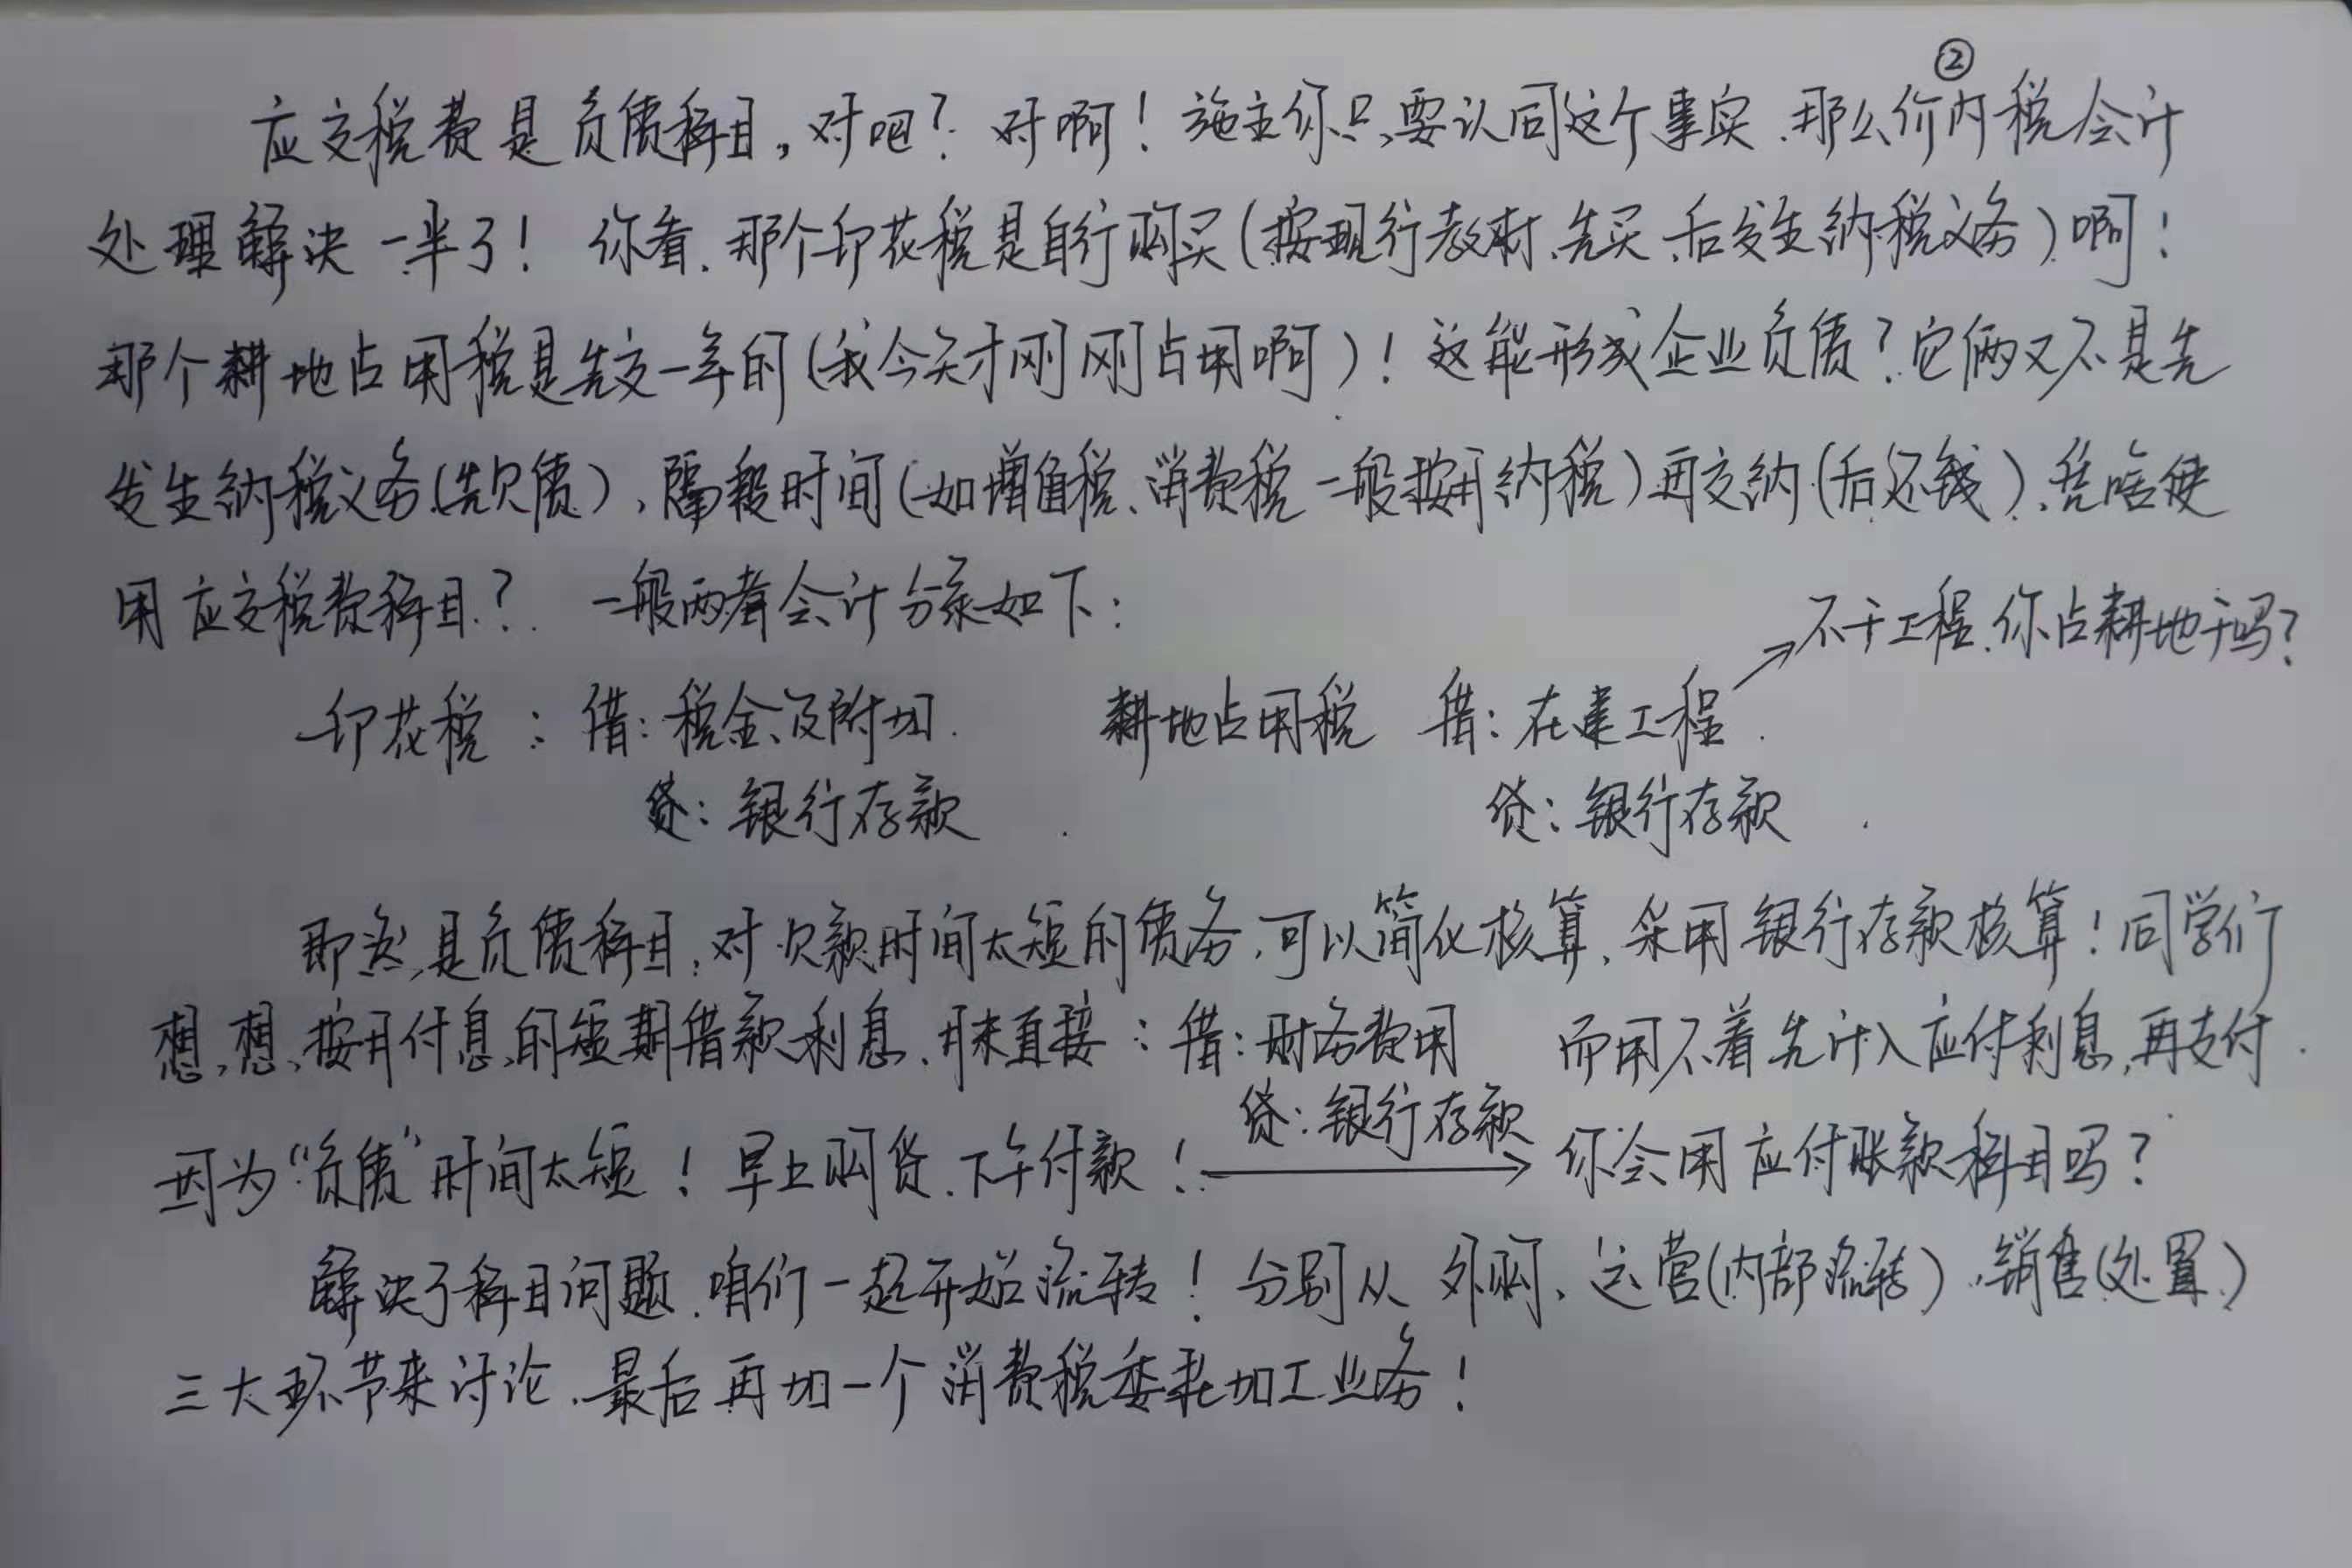 ②
应交税费是负债科目，对吧？对啊！施主你只要认同这个事实、那么价内税会计
处理解决一半了！你看、那个印花税是自行购买(按现行教材、先买、后发生纳税义务)啊！
那个耕地占用税是先交一年的(我今天才刚刚占用啊)！这能形成企业负债？它俩又不是先
发生纳税义务(先欠债)、隔段时间(如增值税、消费税一般按月纳税)再交纳(后还钱)、凭啥使
用应交税费科目？一般两者会计分录如下：
不干工程、你占耕地干吗？
印花税：借：税金及附加 耕地占用税 借：在建工程
贷：银行存款 贷：银行存款
即然是负债科目，对欠款时间太短的债务、可以简化核算、采用银行存款核算！同学们
想想、按月付息的短期借款利息、月末直接：借：财务费用 而用不着先计入应付利息，再支付．
贷：银行存款
因为“负债”时间太短！早上购货、下午付款！ 你会用应付账款科目吗？
解决了科目问题、咱们一起开始流转！分别从外购、运营(内部流转)、销售(处置)
三大环节来讨论、最后再加一个消费税委托加工业务！